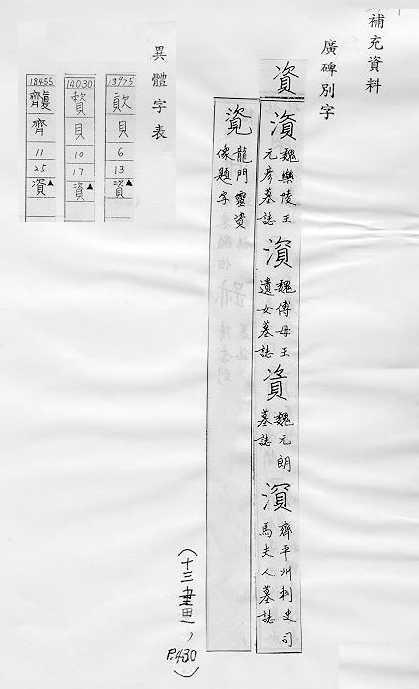 補充資料
廣碑別字
資
魏樂陵王
元彥墓誌
魏傅母王
遺女墓誌
資
魏元朗
墓誌
齊平州刺史司
馬夫人墓誌
龍門靈資
像題字
(十三畫,P.430)
異體字表
13975
貝
6
13
資▲
14030
貝
10
17
資▲
18455
齊
11
25
資▲